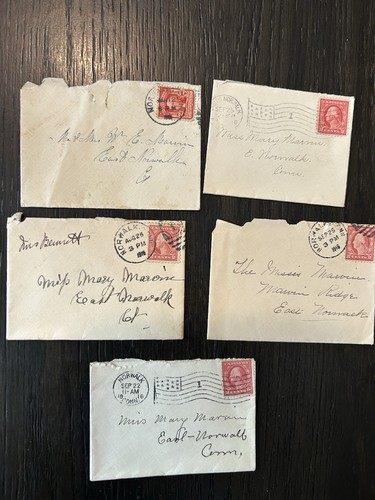 NORWALK
Mr & Mrs Wm E. Marvin
East Norwalk
Ct
NORWALK
1
Miss Mary Marvin
E. Norwalk
Conn
Mrs Bennett
NORWALK
AUG 26
3 PM
1916
Miss Mary Marvin
East Norwalk
Ct
NORWALK, CONN
SEP 25
3 PM
1916
The Misses Marvin
Marvin Ridge
East Norwalk
NORWALK
SEP 22
11-AM
1916
CONN.
1
Miss Mary Marvin
East-Norwalk
Conn.